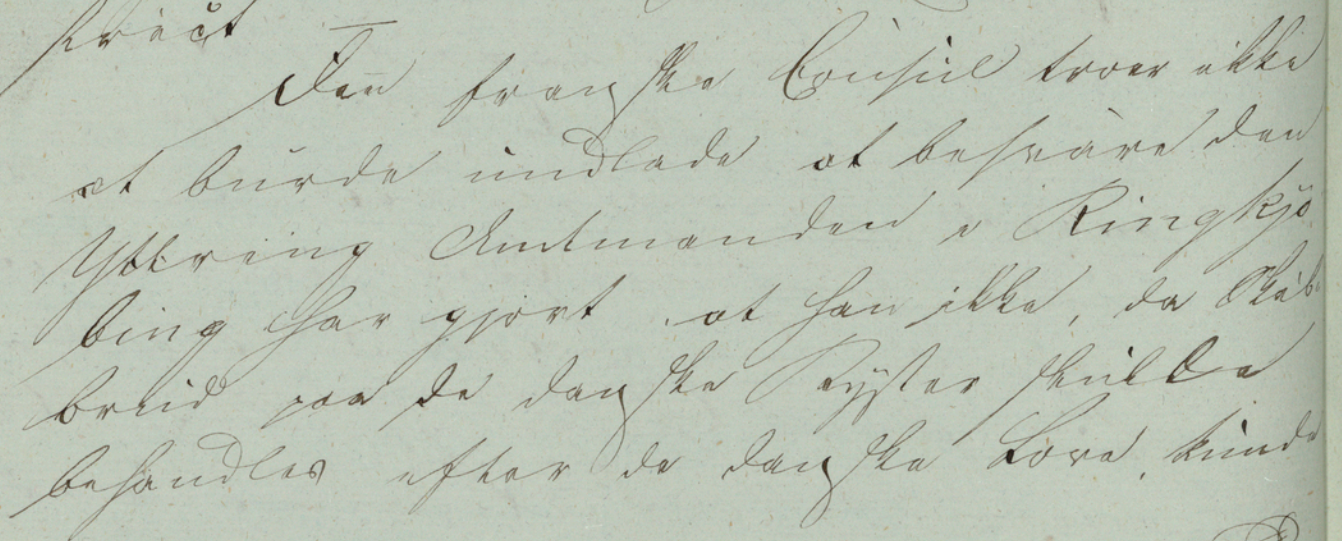 Den franske Consul troer ikke
at burde undlade at besvare den
Yttring Amtmanden i Ringkjö
bing har gjort, at han ikke, da Skib
brud paa de danske Kyster skulde
behandles efter de danske Love, kunde